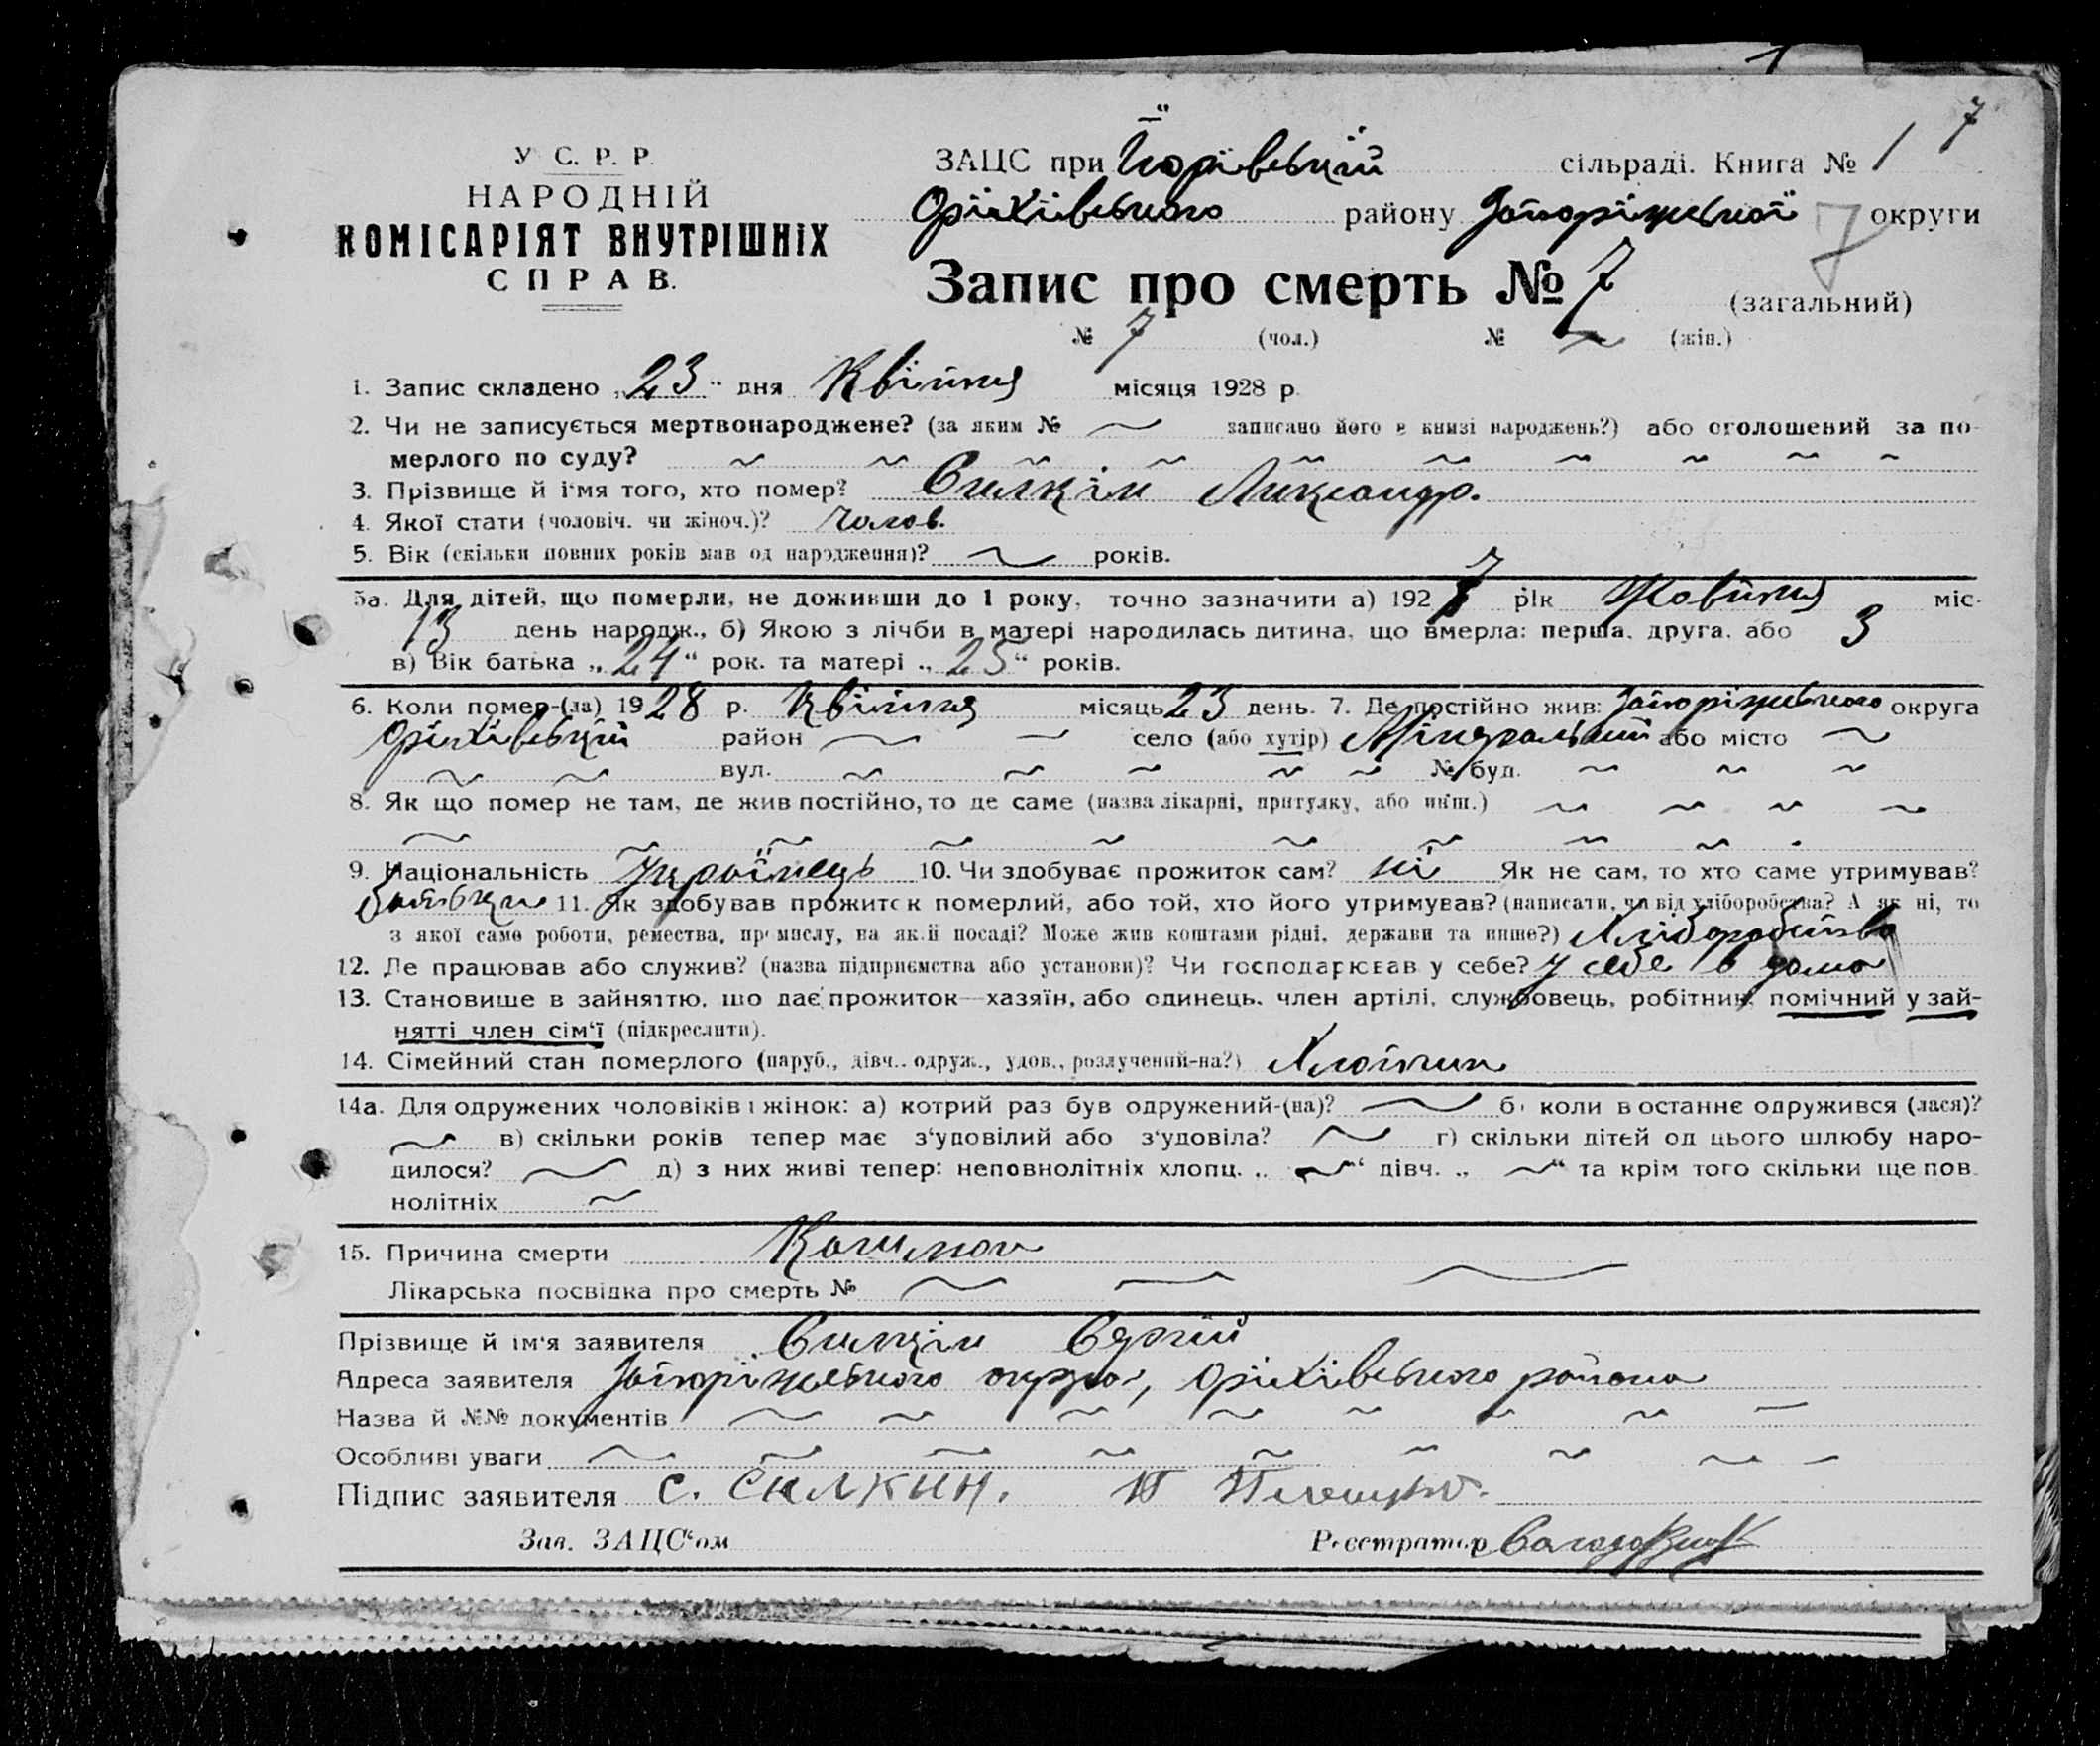 1
7
У С. Р. Р.
НАРОДНІЙ
КОМІСАРІЯТ ВНУТРІШНІХ
СПРАВ.
ЗАЦС при Юрівській сільраді. Книга № 1
Оріхівського району Запоріжської 7 округи
Запис про смерть № 7 (загальний)
№ 7 (чол.) № ~ (жін.)
1. Запис складено „23" дня Квітня місяця 1928 р.
2. Чи не записується мертвонароджене? (за яким № ~ записано його в книзі народжень?) або оголошений за по-
мерлого по суду? ~ ~ ~ ~ ~ ~ ~ ~ ~ ~
3. Прізвище й і'мя того, хто помер? Силкін Александр.
4. Якої стати (чоловіч. чи жіноч.)? Чолов.
5. Вік (скільки повних років мав од народження)? ~ років.
5а. Для дітей, що померли, не доживши до 1 року, точно зазначити а) 1927 рік Жовтня міс.
13 день народж., б) Якою з лічби в матері народилась дитина, що вмерла: перша, друга, або 3
в) Вік батька „24" рок. та матері „25" років.
6. Коли помер-(ла) 1928 р. Квітня місяць 23 день. 7. Де постійно жив: Запоріжського округа
Оріхівській район ~ ~ село (або хутір) або місто ~
~ ~ вул. ~ ~ ~ ~ ~ № буд. ~ ~ ~
8. Як що помер не там, де жив постійно, то де саме (назва лікарні, притулку, або инш.) ~ ~ ~ ~
~ ~ ~ ~ ~ ~ ~ ~ ~
9. Національність Українець 10. Чи здобуває прожиток сам? ні Як не сам, то хто саме утримував?
батьки 11. Як здобував прожиток померлий, або той, хто його утримував? (написати, чи від хліборобства? А як ні, то
з якої саме роботи, ремества, промислу, на якій посаді? Може жив коштами рідні, держави та инше?) Хліборобство
12. Де працював або служив? (назва підприємства або установи)? Чи господарював у себе? у себе в дома
13. Становище в зайняттю, що дає прожиток—хазяїн, або одинець, член артілі, службовець, робітник, помічний у зай-
нятті член сім'ї (підкреслити).
14. Сімейний стан померлого (паруб., дівч., одруж., удов., розлучений-на?) Хлопчик
14а. Для одружених чоловіків і жінок: а) котрий раз був одружений-(на)? ~ б) коли в останнє одружився (лася)?
~ в) скільки років тепер має з'удовілий або з'удовіла? ~ г) скільки дітей од цього шлюбу наро-
дилося? ~ д) з них живі тепер: неповнолітніх хлопц. „~" дівч. „~" та крім того скільки ще пов-
нолітніх ~
15. Причина смерти Кашлюк
Лікарська посвідка про смерть № ~ ~ ~
Прізвище й ім'я заявителя Силкін Сергій
Адреса заявителя Запоріжського округа, Оріхівського района
Назва й №№ документів ~ ~ ~ ~ ~ ~ ~ ~
Особливі уваги ~ ~ ~ ~ ~ ~ ~ ~ ~
Підпис заявителя С. Силкин.
Зав. ЗАЦС'ом Реєстратор